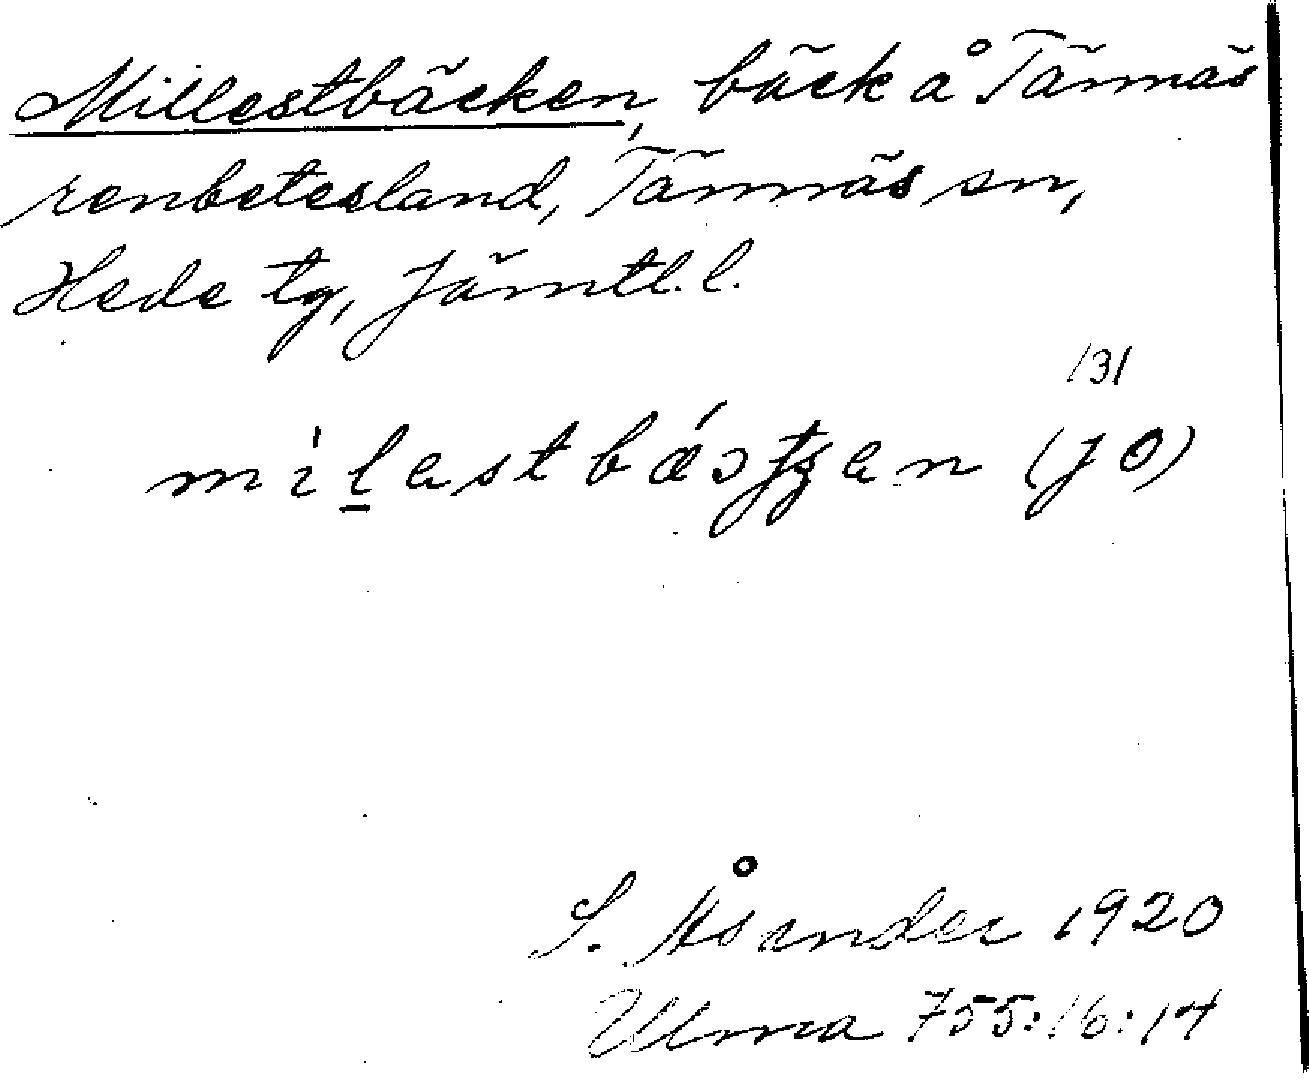 Millestbäcken, bäck å Tännäs
renbetesland, Tännäs sn,
Hede tg, Jämtl.l.
131
(JO)
S. Åsander 1920
Ulma 755:16:14